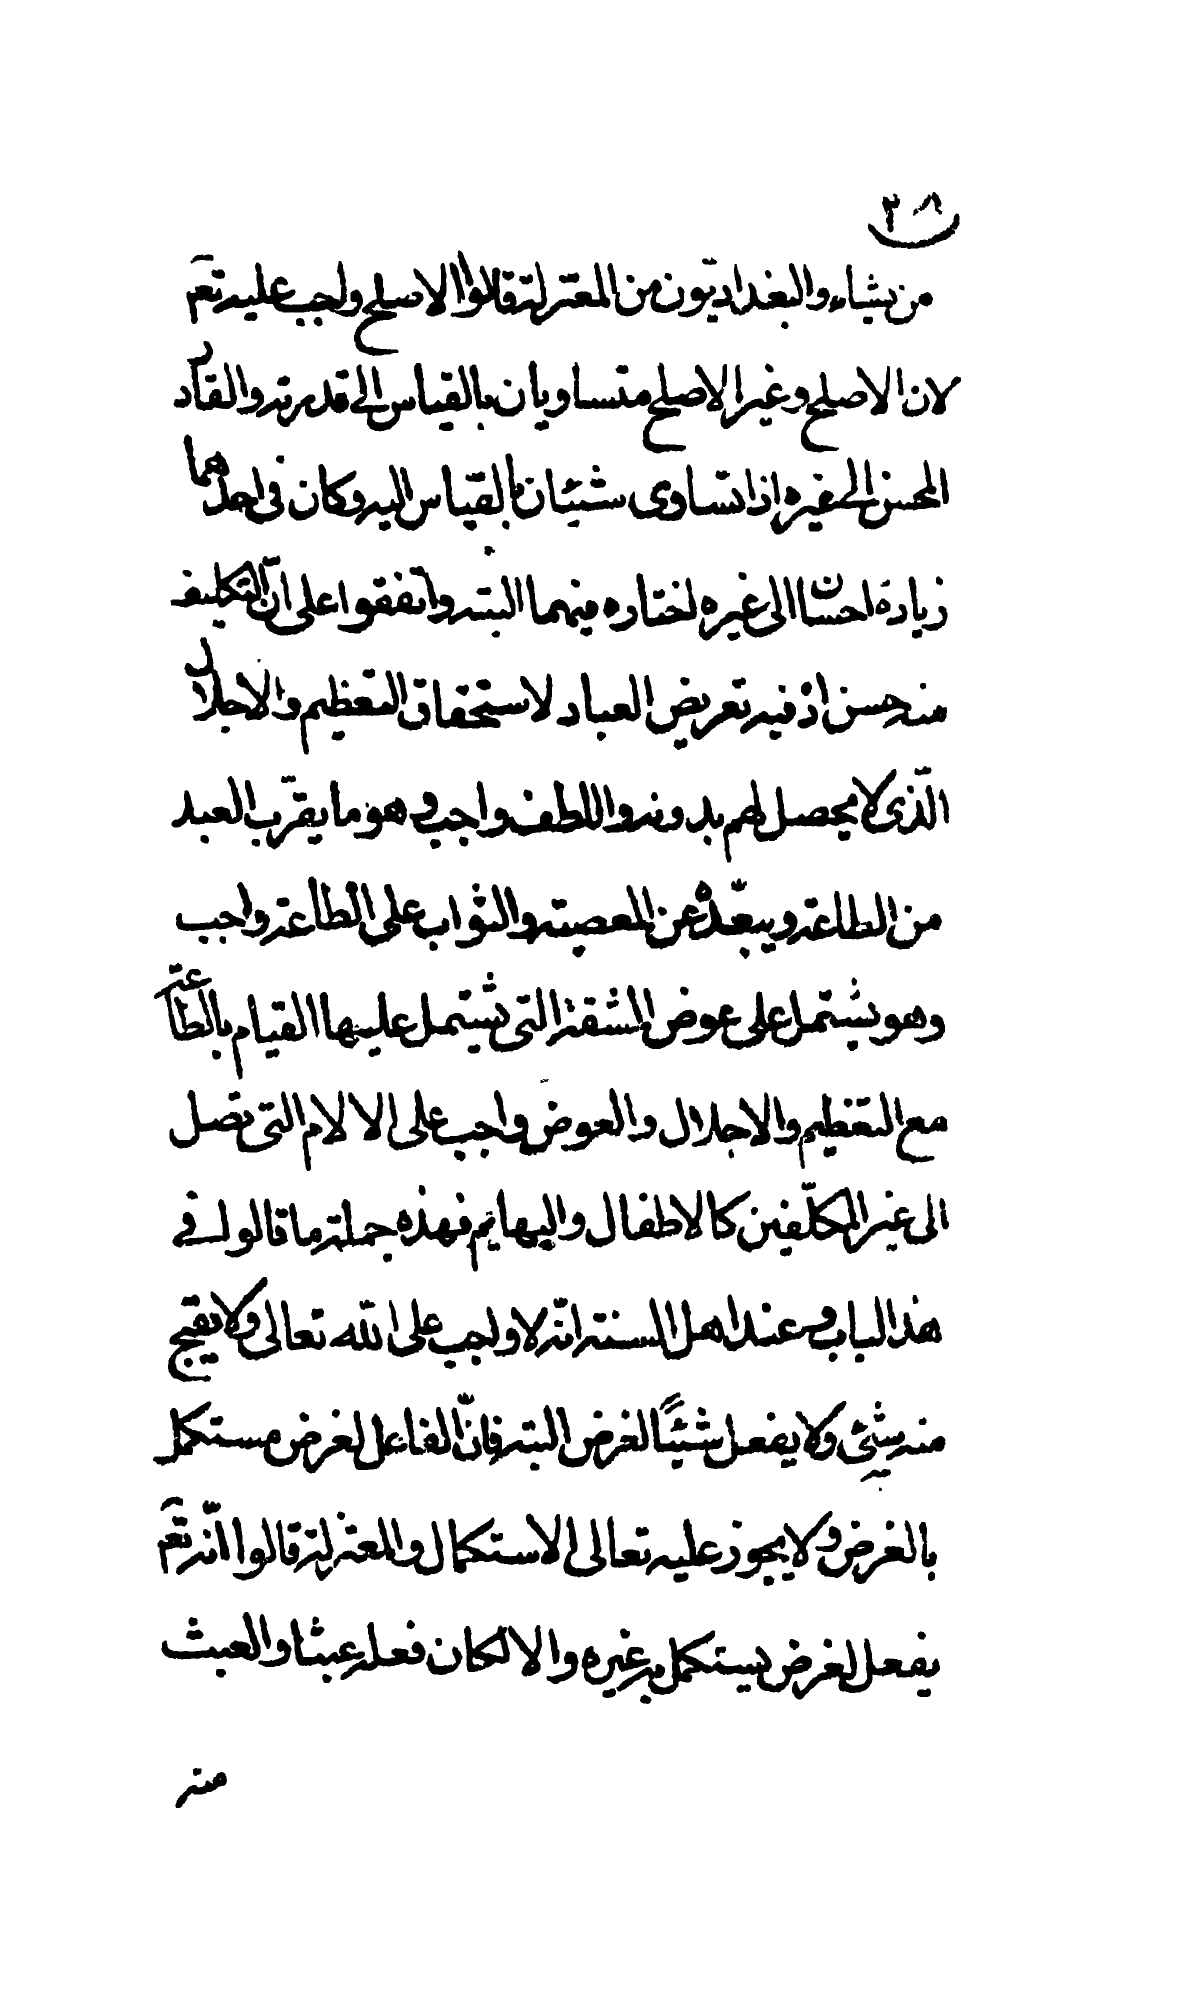 ٣٨
من يشاء والبغداديّون من المعتزلة قالوا الاصلح واجب عليه تعٓم
لان الاصلح وغير الاصلح متساويان بالقياس الى قدرته والقادر
المحسن الى غيره اذا تساوى شيئان بالقياس اليه وكان فى احدهما
زيادة احسان الى غيره اختاره منهما البته واتفقوا على انّ التكليف
منه حسن اذ فيه تعريض العباد لاستحقاق التعظيم والاجلال
الّذى لا يحصل لهم بدونه واللطف واجب وهو ما يقرّب العبد
من الطاعة ويبعّده عن المعصيته والثواب على الطاعة واجب
وهو يشتمل على عوض المشقة التى يشتمل عليها القيام بالطاعة
مع التعظيم والاجلال والعوض واجب على الالام التى تصل
الى غير المكلّفين كالاطفال والبهايم فهذه جملة ما قالوا فى
هذا الباب وعند اهل السنته انّه لا واجب على اللّه تعالى ولا يقبح
منه شئ ولا يفعل شيئًا لغرض البته فانّ الفاعل لغرض مستكمل
بالغرض ولا يجوز عليه تعالى الاستكمال والمعتزلة قالوا انّه تعٓم
يفعل لغرض يستكمل به غيره والا لكان فعله عبثا والعبث
منه